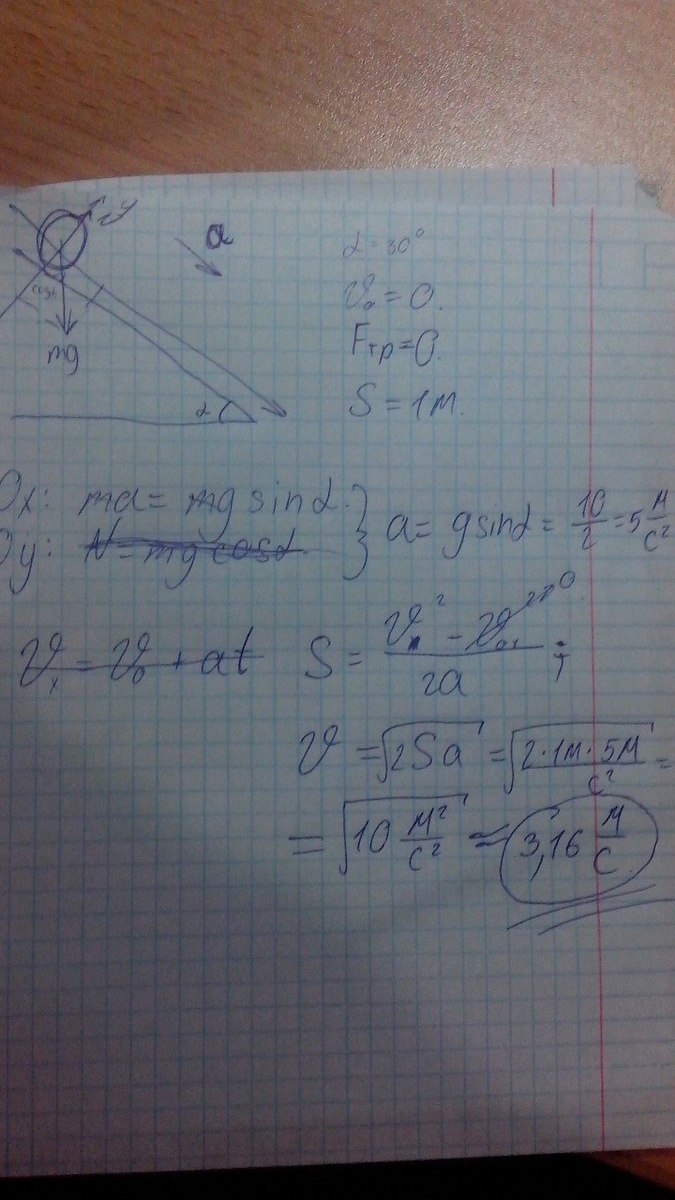 y
a
α = 30°
cosα
v₀ = 0.
mg
Fтр = 0.
S = 1м.
α
Ox: ma = mg sinα.
Oy: N = mg cosα
} a = g sinα = 10/2 = 5 м/с²
vₓ = v₀ + at
S = (vₓ² - v₀ₓ²)/2a ; 0
v = √2Sa = √(2·1м·5м/с²) =
= √(10 м²/с²) ≈ 3,16 м/с